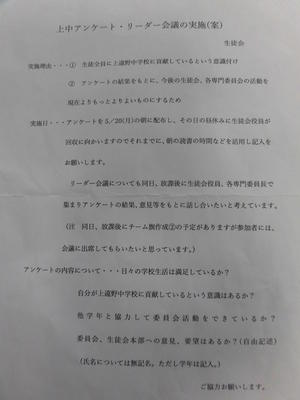 上中アンケート・リーダー会議の実施(案)
生徒会
実施理由・・・① 生徒全員に上遠野中学校に貢献しているという意識付け
② アンケートの結果をもとに、今後の生徒会、各専門委員会の活動を
現在よりもっとよりよいものにするため
実施日・・・アンケートを5/20(月)の朝に配布し、その日の昼休みに生徒会役員が
回収に向かいますのでそれまでに、朝の読書の時間などを活用し記入を
お願いします。
リーダー会議についても同日、放課後に生徒会役員、各専門委員長で
集まりアンケートの結果、意見等をもとに話し合いたいと考えています。
(注 同日、放課後にチーム旗作成②の予定がありますが参加者には、
会議に出席してもらいたいと思っています。)
アンケートの内容について・・・日々の学校生活は満足しているか?
自分が上遠野中学校に貢献しているという意識はあるか?
他学年と協力して委員会活動をできているか?
委員会、生徒会本部への意見、要望はあるか?(自由記述)
(氏名については無記名。ただし学年は記入。)
ご協力お願いします。